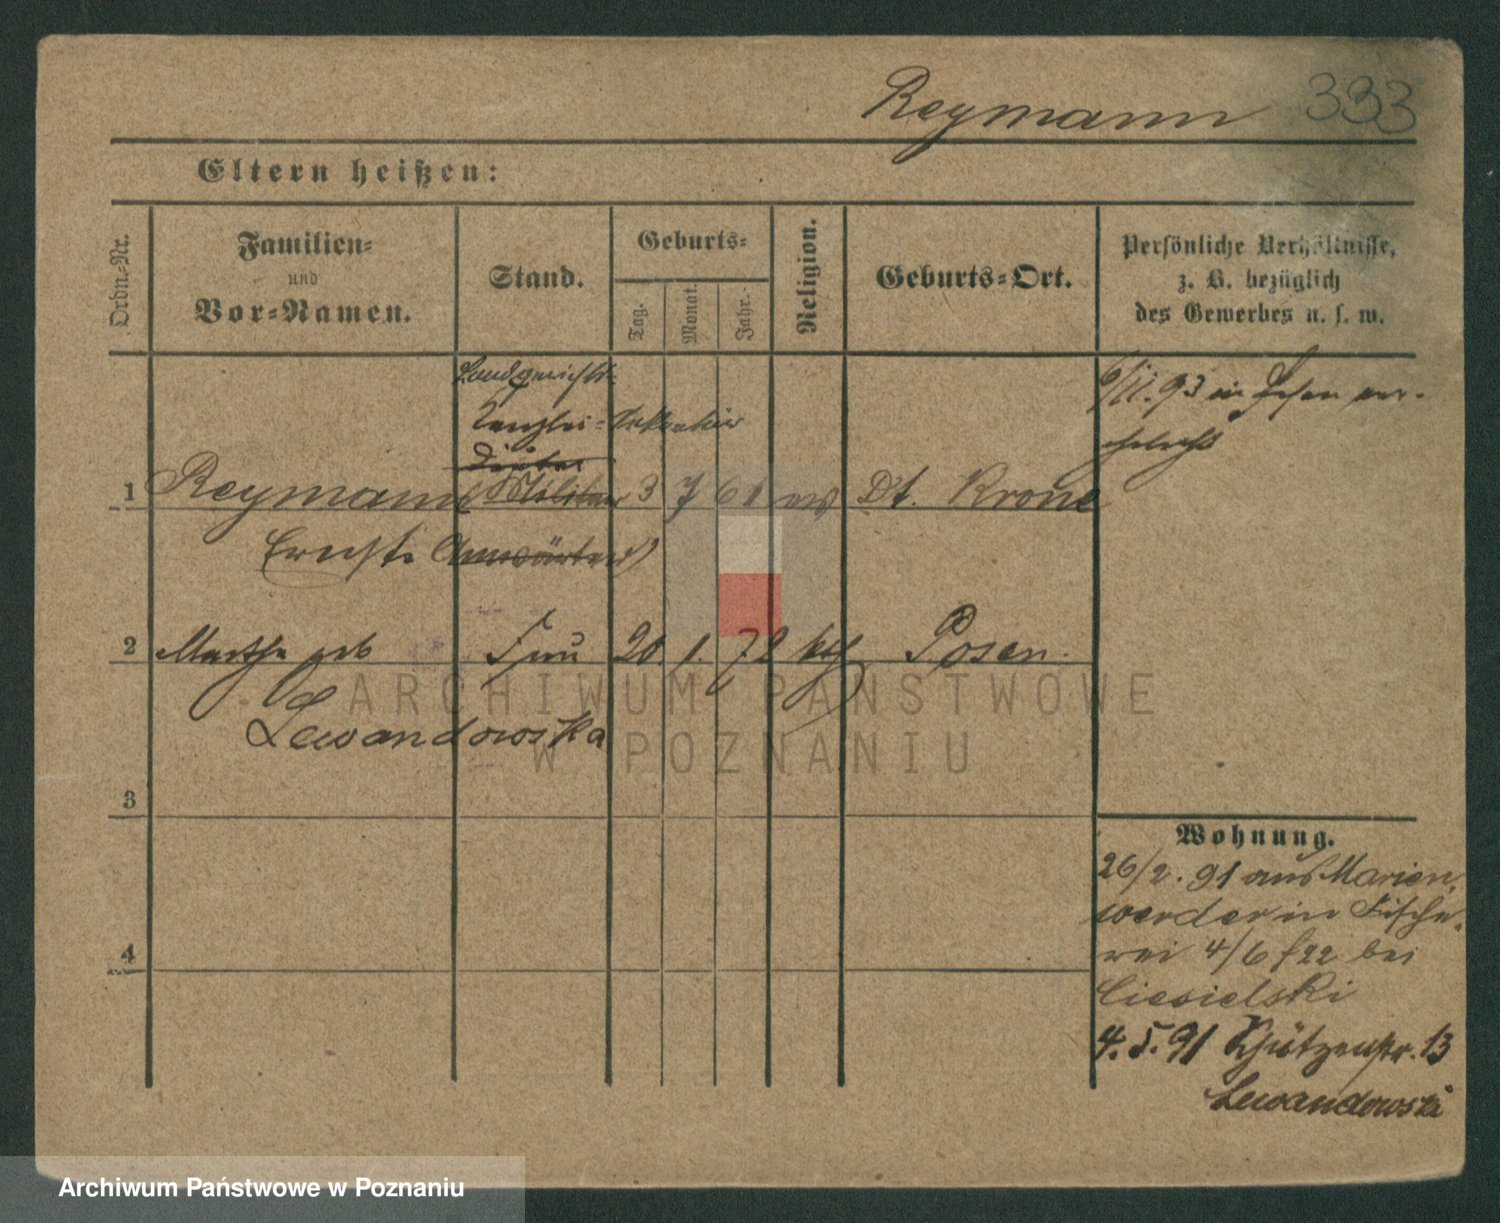 Reymann 333
Eltern heißen:
Ordn.-Nr.
Familien-
und
Vor-Namen.
Stand.
Geburts-
Tag.
Monat.
Jahr.
Religion.
Geburts-Ort.
Persönliche Verhältnisse,
z. B. bezüglich
des Gewerbes u. s. w.
Landgerichts-
Kanzlei-
Diätar
1 Reymann (Militair 3 7 61 ev Dt. Krone
Ernst Anwärter)
6/11. 93 in Posen ver-
ehelicht
2 Martha geb Frau 20. 1. 72 kth Posen.
Lewandowska
3
4
Wohnung.
26/2. 91 aus Marien,
werder in Fische,
rei 4/6 f 22 bei
Ciesielski
4. 5. 91 Schützenstr. 13
Lewandowski
ARCHIWUM PAŃSTWOWE
W POZNANIU
Archiwum Państwowe w Poznaniu